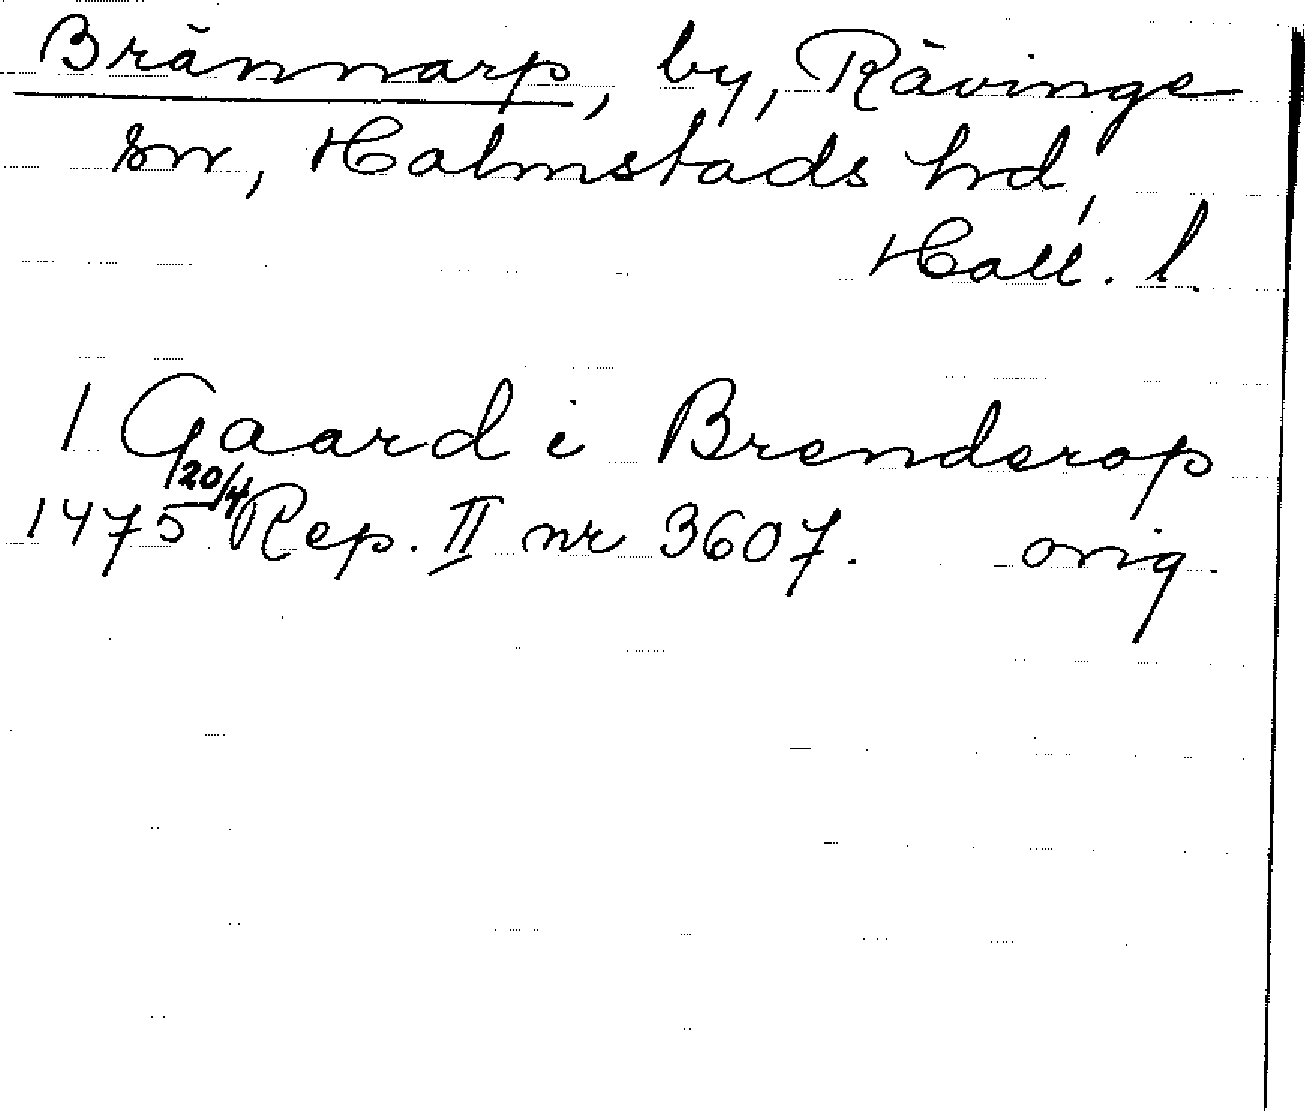 Brännarp, by, Rävinge
sn, Halmstads hrd,
Hall. l.
1 Gaard i Brenderop
1475 20/4 Rep. II nr 3607. orig.